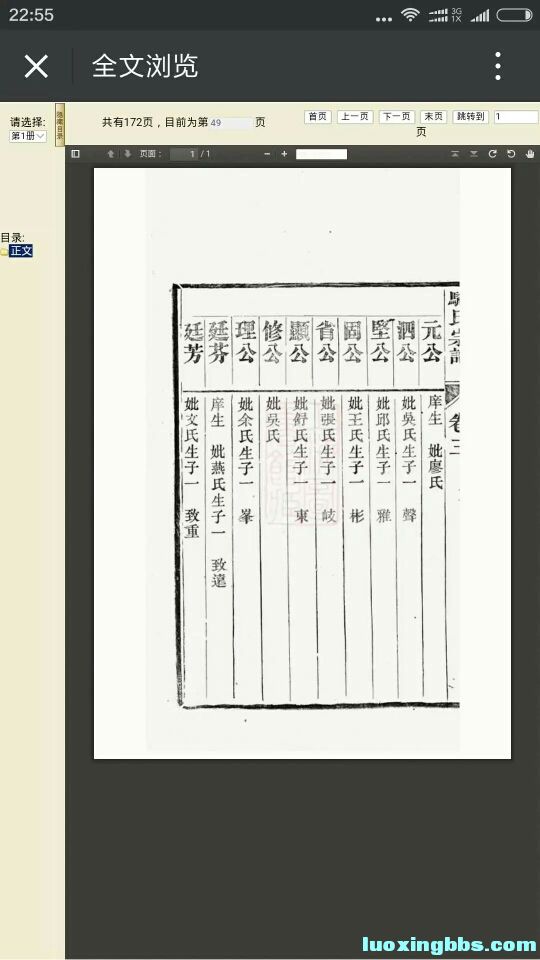 22:55
3G
1X
全文浏览
请选择:
第1册
隐藏目录
共有172页，目前为第 49 页
首页
上一页
下一页
末页
跳转到
1
页
页面：
1 / 1
目录:
正文
氏宗譜
卷三
元公
庠生 妣廖氏
泗公
妣吳氏生子一 聲
堅公
妣邱氏生子一 雅
固公
妣王氏生子一 彬
省公
妣張氏生子一 岐
顯公
妣舒氏生子一 東
修公
妣吳氏
理公
妣余氏生子一 峯
廷芬
庠生 妣燕氏生子一 致遠
廷芳
妣文氏生子一 致重
luoxingbbs.com